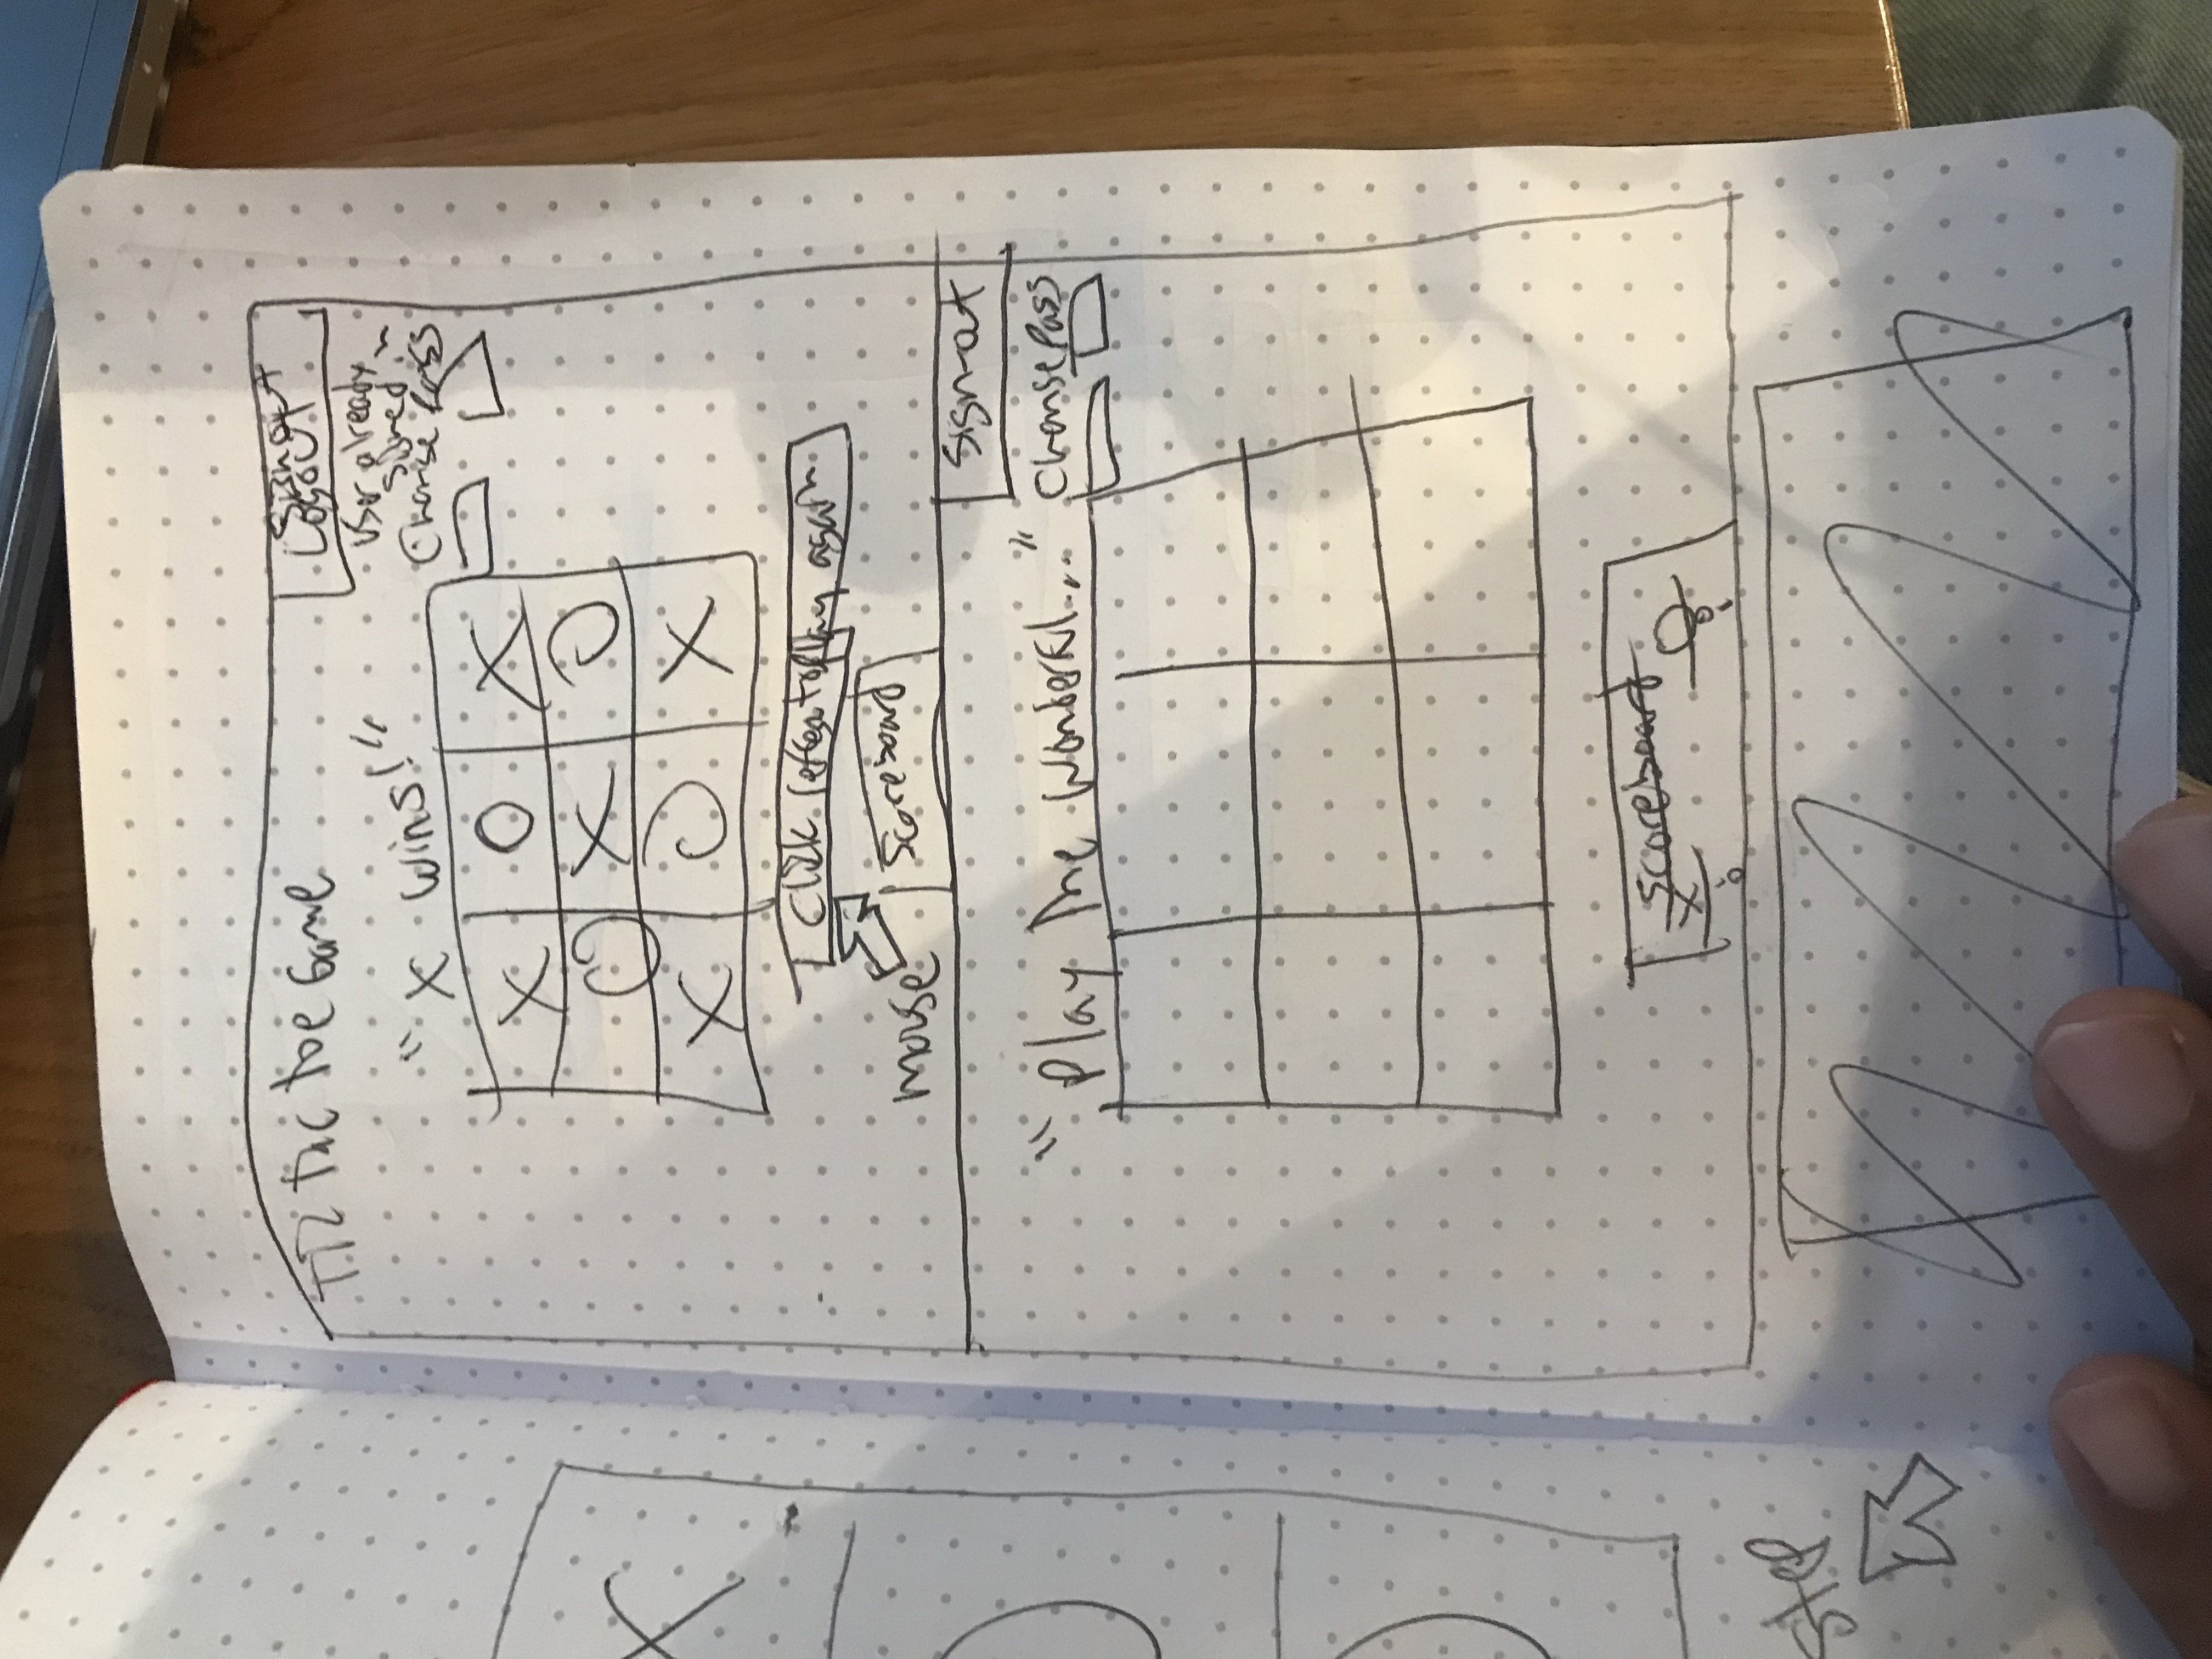 Tic Tac Toe Game
Sign out
Logout
User already
signed in
"X wins!"
Change Pass
X O X
O X O
X O X
Click to play again
mouse
Scoreboard
Sign-out
"Play The Wonderful..."
Change Pass
Scoreboard
X O
Step
X